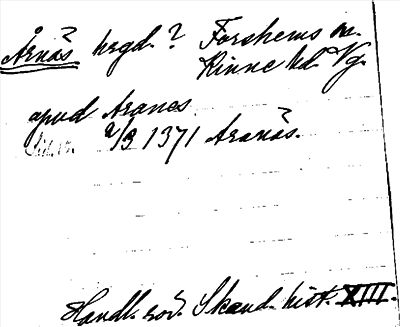 Årnäs hrgd. ? Forshems sn.
Kinne hd. Vg.
apud Aranes
2/3 1371 Aranæs.
Handl. rör. Skand. hist. XIII.